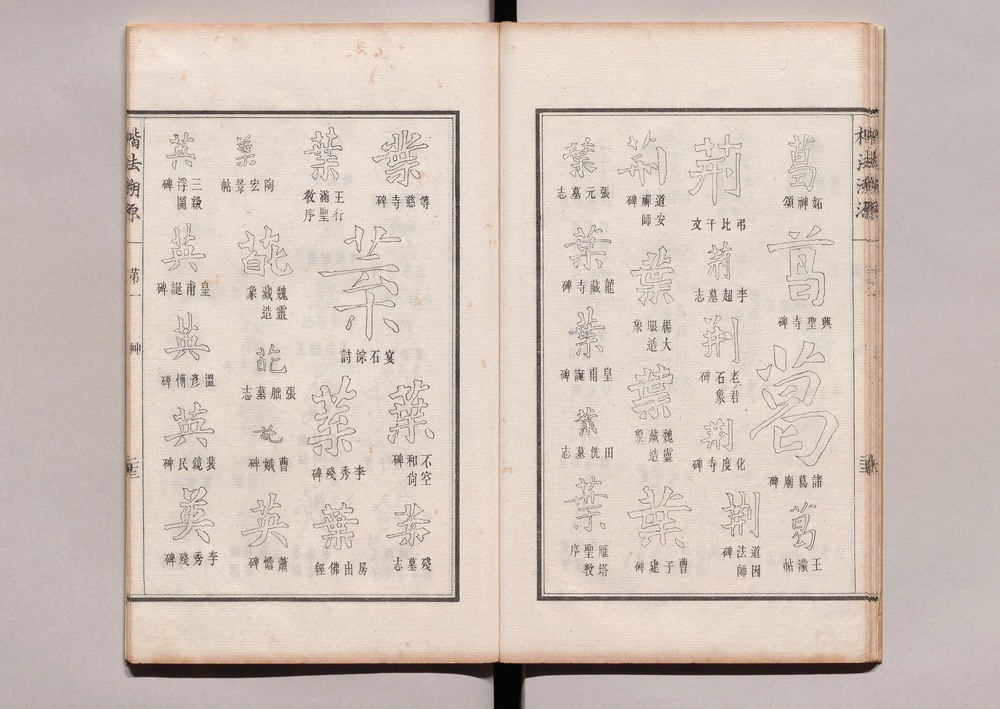 楷法溯源
葛
妬神頌
葛
興聖寺碑
葛
諸葛廟碑
葛
王濛帖
荆
弔比干文
荆
李超墓志
荆
老君石象碑
荆
化度寺碑
荆
道因法師碑
荆
道安禪師碑
葉
楊大眼造象
葉
魏靈藏造象
葉
曹子建碑
葉
張元墓志
葉
龍藏寺碑
葉
皇甫誕碑
葉
田侁墓志
葉
雁塔聖教序
葉
等慈寺碑
葉
宴石淙詩
葉
不空和尙碑
葉
殘墓志
葉
王行滿聖教序
葉
李秀殘碑
葉
房山佛經
葉
陶宏景帖
葩
魏靈藏造象
葩
張墓志
葩
曹娥碑
英
蕭憺碑
英
三級浮圖碑
英
皇甫誕碑
英
溫彥博碑
英
裴鏡民碑
英
李秀殘碑
楷法溯原
第一
艸